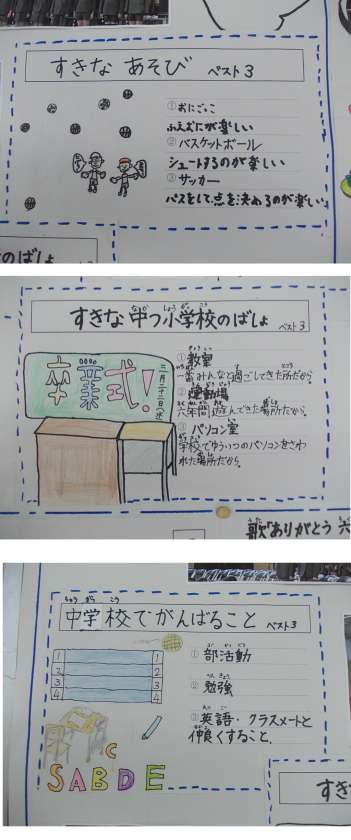 すきな あそび ベスト3
①おにごっこ
ふえおにが楽しい
②バスケットボール
シュートするのが楽しい
③サッカー
パスをして点を決めるのが楽しい
のばしょ
すきな 中つ小学校のばしょ ベスト3
卒業式!
三月二十三日(水)
①教室
一番みんなと過ごしてきた所だから。
②運動場
六年間遊んできた場所だから。
③パソコン室
学校でゆういつのパソコンをさわ
れた場所だから。
歌「ありがとう 六
中学校でがんばること ベスト3
1 1
2 2
3 3
4 4
①部活動
②勉強
③英語・クラスメートと
仲良くすること。
C
SABDE
すき